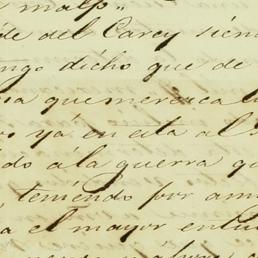 malp..
de del Carey sien
ngo dicho que de
na que meresca
yá en esta al
do á la guerra q
teniendo por am
a el mayor entu